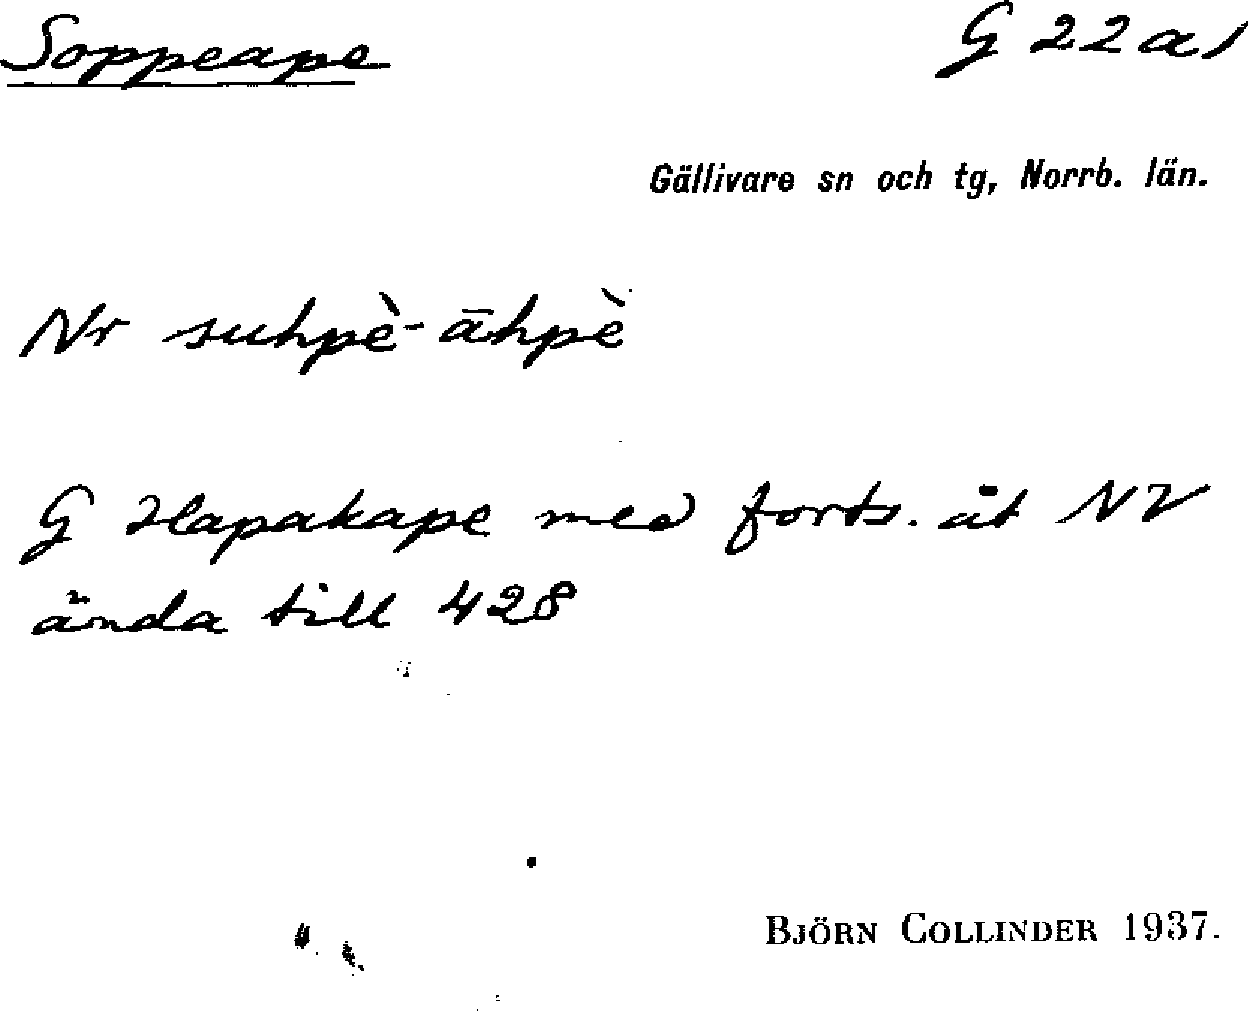 Soppeape G 22 a 1
Gällivare sn och tg, Norrb. län.
Nr suhpè-āhpè
G Hapakape med forts. åt NV
ända till 428
BJÖRN COLLINDER 1937.